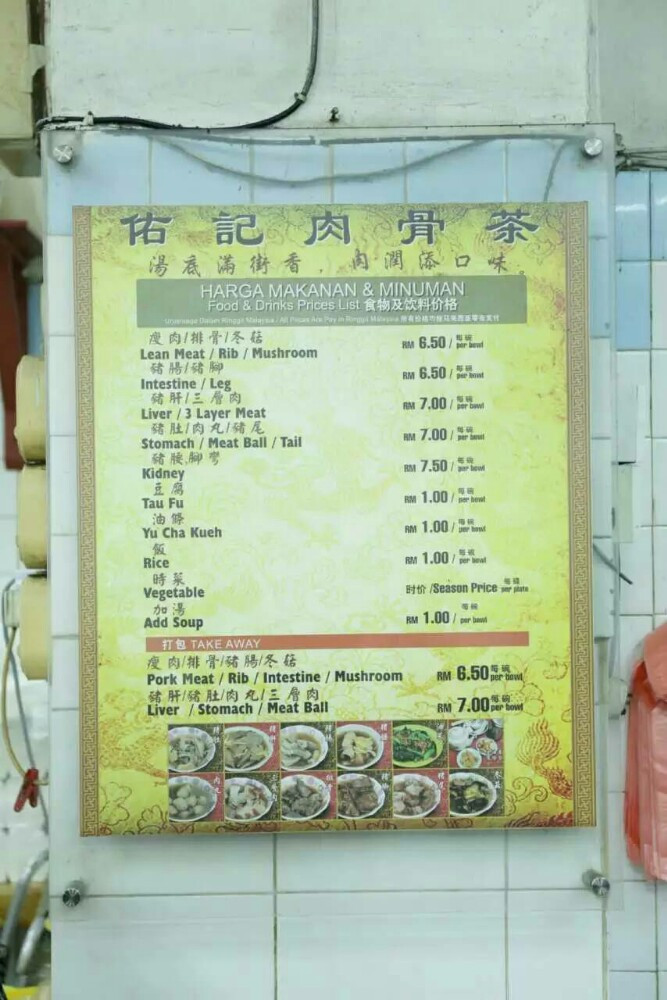 佑記肉骨茶
湯底滿街香，肉潤添口味。
HARGA MAKANAN & MINUMAN
Food & Drinks Prices List 食物及饮料价格
瘦肉/排骨/冬菇
Lean Meat / Rib / Mushroom RM 6.50 / 每碗 per bowl
豬腸/豬腳
Intestine / Leg RM 6.50 / 每碗 per bowl
豬肝/三層肉
Liver / 3 Layer Meat RM 7.00 / 每碗 per bowl
豬肚/肉丸/豬尾
Stomach / Meat Ball / Tail RM 7.00 / 每碗 per bowl
豬腰,腳彎
Kidney RM 7.50 / 每碗 per bowl
豆腐
Tau Fu RM 1.00 / 每碗 per bowl
油條
Yu Cha Kueh RM 1.00 / 每碗 per bowl
飯
Rice RM 1.00 / 每碗 per bowl
時菜
Vegetable 时价 /Season Price 每碟 per plate
加湯
Add Soup RM 1.00 / 每碗 per bowl
打包 TAKE AWAY
瘦肉/排骨/豬腸/冬菇
Pork Meat / Rib / Intestine / Mushroom RM 6.50 每碗 per bowl
豬肝/豬肚/肉丸/三層肉
Liver / Stomach / Meat Ball RM 7.00 每碗 per bowl